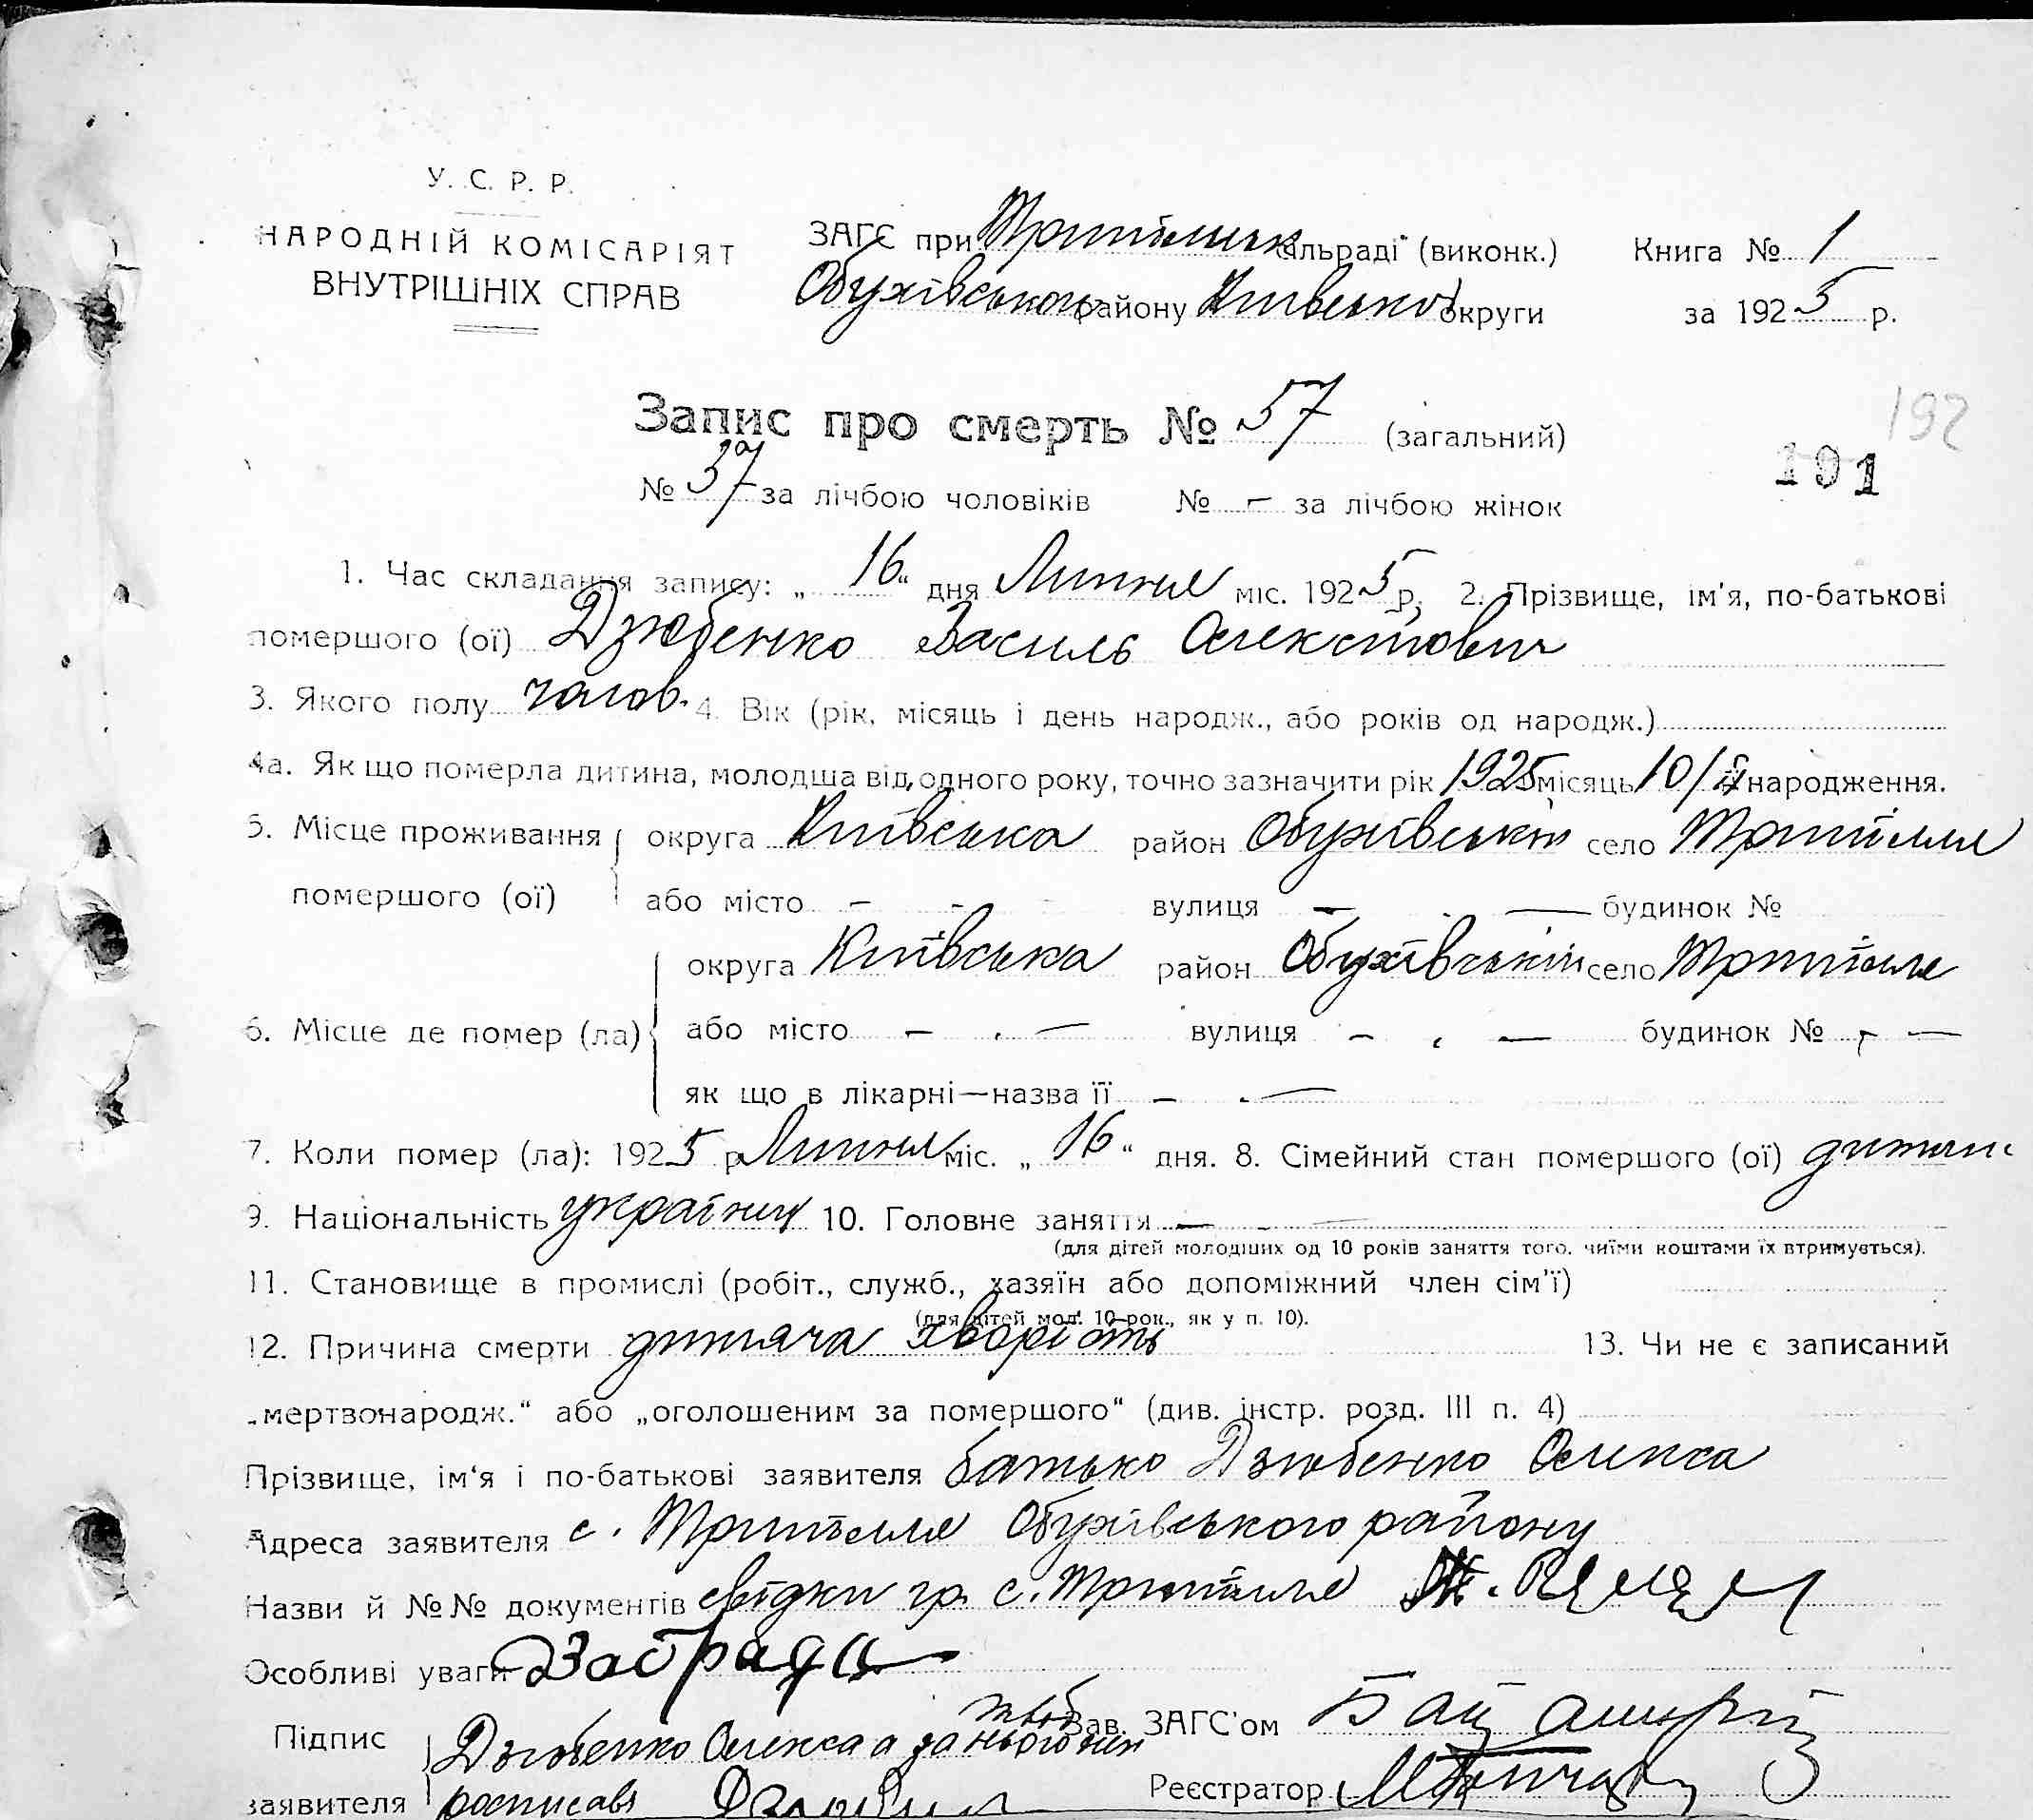 У. С. Р. Р.
НАРОДНІЙ КОМІСАРІЯТ
ВНУТРІШНІХ СПРАВ
ЗАГС при Трипільськ сільраді (виконк.)
Обухівського району Київської округи
Книга № 1
за 1925 р.
Запис про смерть № 57 (загальний)
192
191
№ 37 за лічбою чоловіків № – за лічбою жінок
1. Час складання запису: „ 16 “ дня Липня міс. 1925 р. 2. Прізвище, ім'я, по-батькові
помершого (ої) Дзюбенко Василь Олексійович
3. Якого полу чолов. 4. Вік (рік, місяць і день народж., або років од народж.)
4а. Як що померла дитина, молодша від одного року, точно зазначити рік 1925 місяць 10/ її народження.
5. Місце проживання округа Київська район Обухівський село Трипілля
помершого (ої) або місто – - вулиця – — будинок №
округа Київська район Обухівський село Трипілля
6. Місце де помер (ла) або місто – — вулиця – — будинок № – —
як що в лікарні—назва її – —
7. Коли помер (ла): 1925 р. Липня міс. „ 16 “ дня. 8. Сімейний стан помершого (ої) дитина
9. Національність українец 10. Головне заняття — - —
(для дітей молодших од 10 років заняття того, чиїми коштами їх втримується).
11. Становище в промислі (робіт., служб., хазяїн або допоміжний член сім'ї)
(для дітей мол. 10 рок., як у п. 10).
12. Причина смерти дитяча хворість 13. Чи не є записаний
„мертвонародж.“ або „оголошеним за помершого“ (див. інстр. розд. III п. 4)
Прізвище, ім'я і по-батькові заявителя батько Дзюбенко Олекса
Адреса заявителя с. Трипілля Обухівського району
Назви й №№ документів свідки гр. с. Трипілля
Особливі уваги
Підпис Дзюбенко Олекса а за нього Зав. ЗАГС'ом
заявителя росписавсь Реєстратор